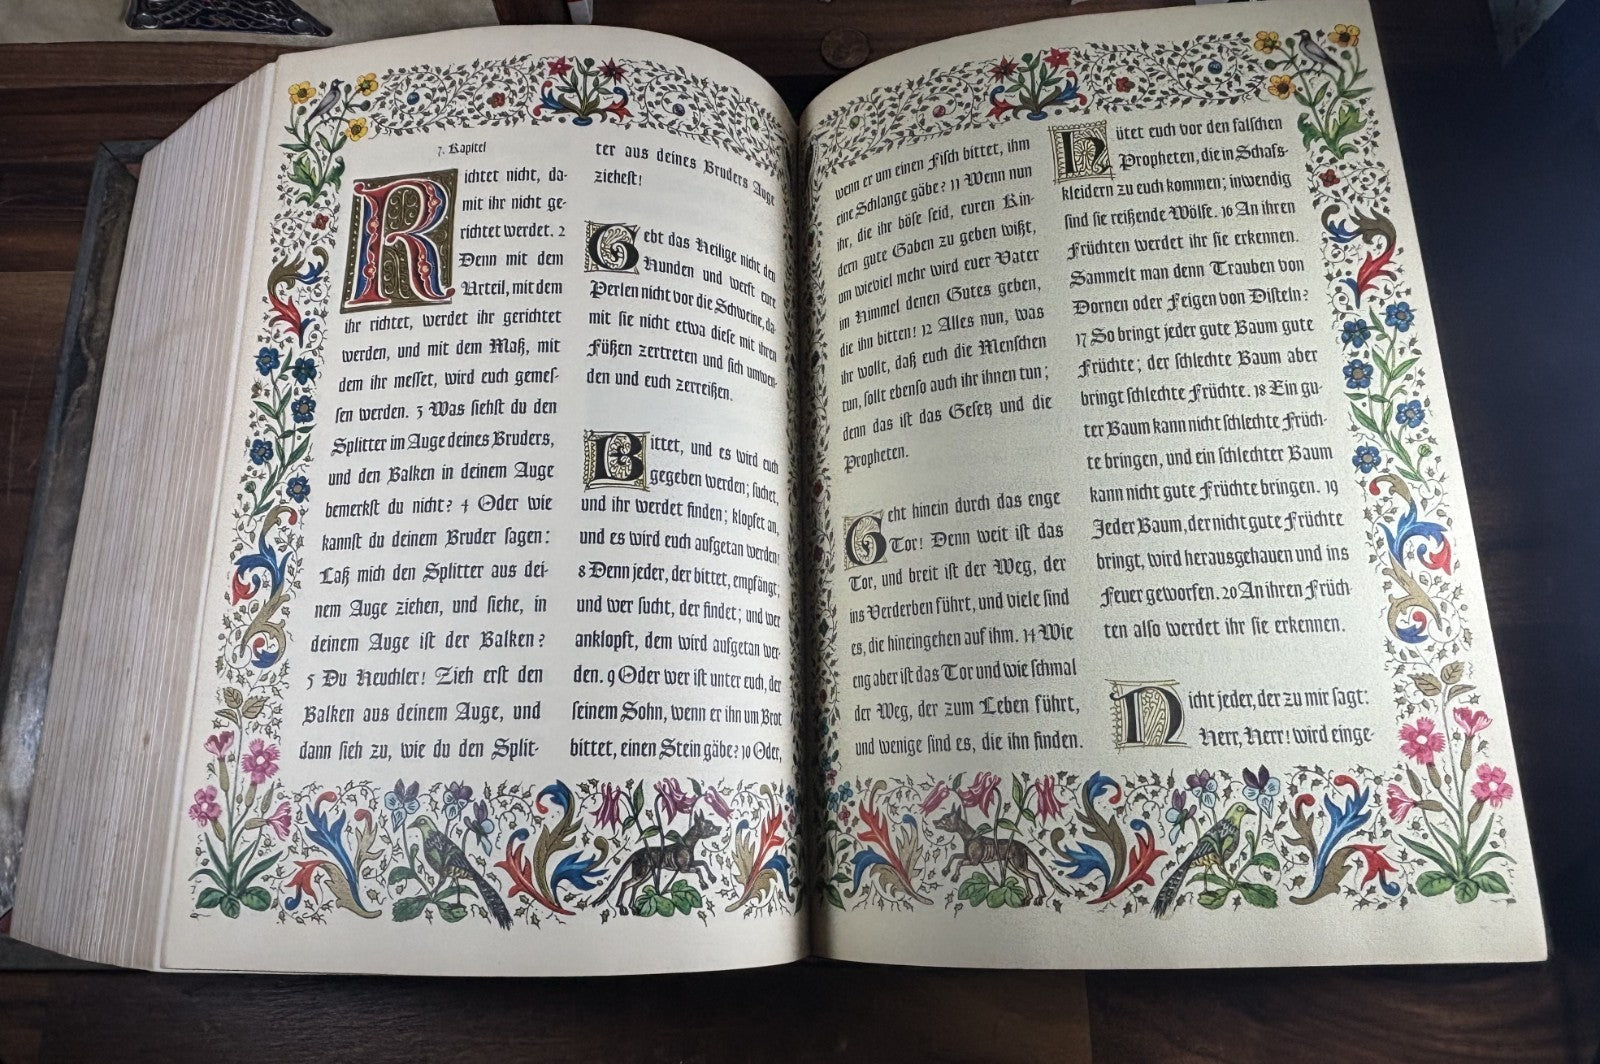 7. Kapitel
Richtet nicht, da-
mit ihr nicht ge-
richtet werdet. 2
Denn mit dem
Urteil, mit dem
ihr richtet, werdet ihr gerichtet
werden, und mit dem Maß, mit
dem ihr messet, wird euch gemes-
sen werden. 3 Was siehst du den
Splitter im Auge deines Bruders,
und den Balken in deinem Auge
bemerkst du nicht? 4 Oder wie
kannst du deinem Bruder sagen:
Laß mich den Splitter aus dei-
nem Auge ziehen, und siehe, in
deinem Auge ist der Balken?
5 Du Heuchler! Zieh erst den
Balken aus deinem Auge, und
dann sieh zu, wie du den Split-
ter aus deines Bruders Auge
ziehest!
Gebt das Heilige nicht den
Hunden und werft eure
Perlen nicht vor die Schweine, da-
mit sie nicht etwa diese mit ihren
Füßen zertreten und sich umwen-
den und euch zerreißen.
Bittet, und es wird euch
gegeben werden; suchet,
und ihr werdet finden; klopfet an,
und es wird euch aufgetan werden!
8 Denn jeder, der bittet, empfängt;
und wer sucht, der findet; und wer
anklopft, dem wird aufgetan wer-
den. 9 Oder wer ist unter euch, der
seinem Sohn, wenn er ihn um Brot
bittet, einen Stein gäbe? 10 Oder,
wenn er um einen Fisch bittet, ihm
eine Schlange gäbe? 11 Wenn nun
ihr, die ihr böse seid, euren Kin-
dern gute Gaben zu geben wißt,
um wieviel mehr wird euer Vater
im Himmel denen Gutes geben,
die ihn bitten! 12 Alles nun, was
ihr wollt, daß euch die Menschen
tun, sollt ebenso auch ihr ihnen tun;
denn das ist das Gesetz und die
Propheten.
Geht hinein durch das enge
Tor! Denn weit ist das
Tor, und breit ist der Weg, der
ins Verderben führt, und viele sind
es, die hineingehen auf ihm. 14 Wie
eng aber ist das Tor und wie schmal
der Weg, der zum Leben führt,
und wenige sind es, die ihn finden.
Hütet euch vor den falschen
Propheten, die in Schafs-
kleidern zu euch kommen; inwendig
sind sie reißende Wölfe. 16 An ihren
Früchten werdet ihr sie erkennen.
Sammelt man denn Trauben von
Dornen oder Feigen von Disteln?
17 So bringt jeder gute Baum gute
Früchte; der schlechte Baum aber
bringt schlechte Früchte. 18 Ein gu-
ter Baum kann nicht schlechte Früch-
te bringen, und ein schlechter Baum
kann nicht gute Früchte bringen. 19
Jeder Baum, der nicht gute Früchte
bringt, wird herausgehauen und ins
Feuer geworfen. 20 An ihren Früch-
ten also werdet ihr sie erkennen.
Nicht jeder, der zu mir sagt:
Herr, Herr! wird einge-